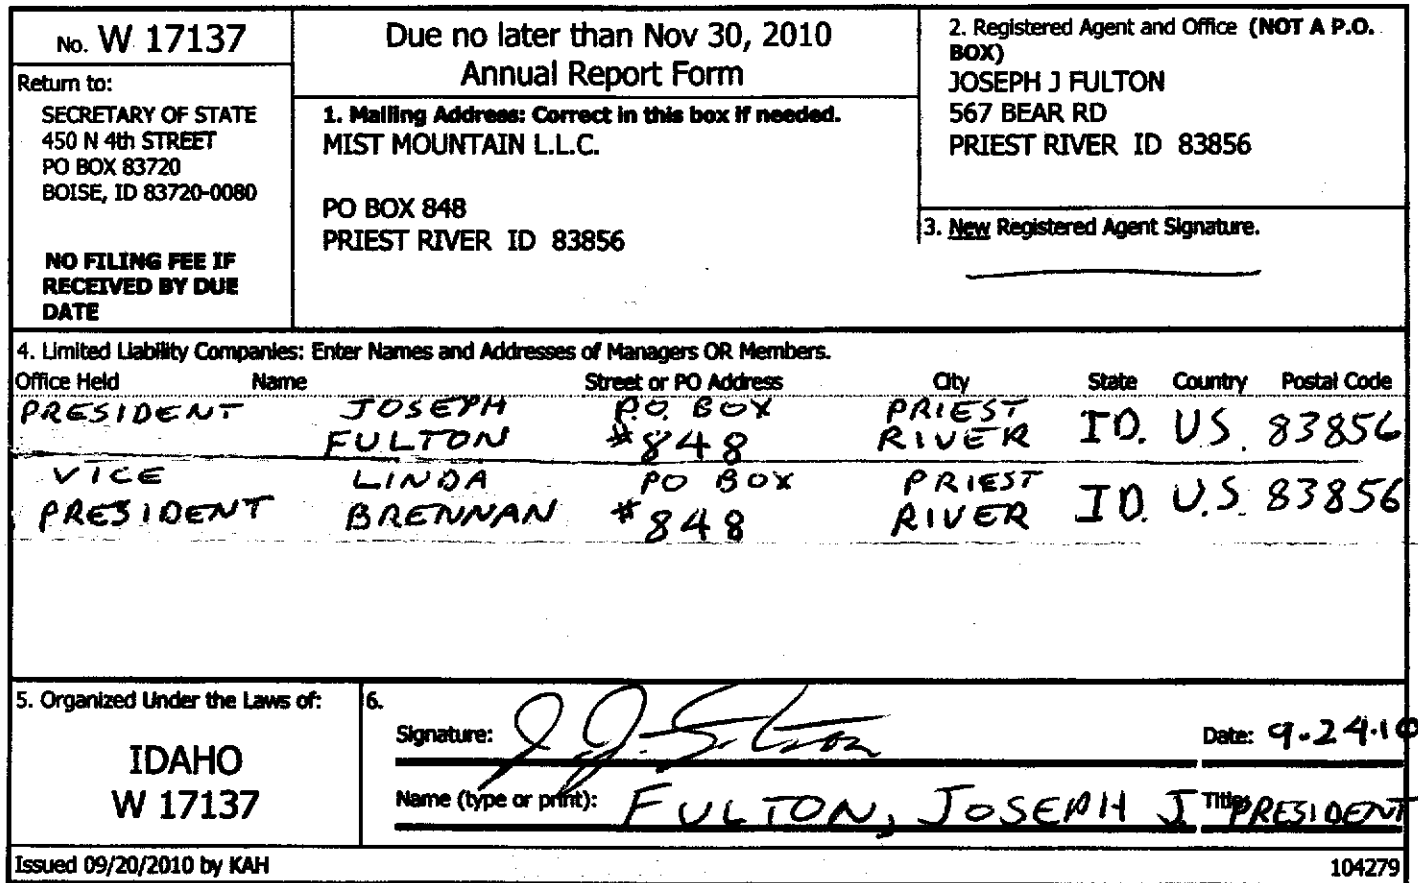 No. W 17137
Return to:
SECRETARY OF STATE
450 N 4th STREET
PO BOX 83720
BOISE, ID 83720-0080
NO FILING FEE IF
RECEIVED BY DUE
DATE
Due no later than Nov 30, 2010
Annual Report Form
1. Mailing Address: Correct in this box if needed.
MIST MOUNTAIN L.L.C.
PO BOX 848
PRIEST RIVER ID 83856
2. Registered Agent and Office (NOT A P.O.
BOX)
JOSEPH J FULTON
567 BEAR RD
PRIEST RIVER ID 83856
3. New Registered Agent Signature.
4. Limited Liability Companies: Enter Names and Addresses of Managers OR Members.
Office Held Name Street or PO Address City State Country Postal Code
PRESIDENT JOSEPH P.O. BOX PRIEST
FULTON #848 RIVER ID. US. 83856
VICE LINDA PO BOX PRIEST
PRESIDENT BRENNAN #848 RIVER ID. U.S. 83856
5. Organized Under the Laws of:
IDAHO
W 17137
6.
Signature: Date: 9-24-10
Name (type or print): FULTON, JOSEPH J Title: PRESIDENT
Issued 09/20/2010 by KAH 104279